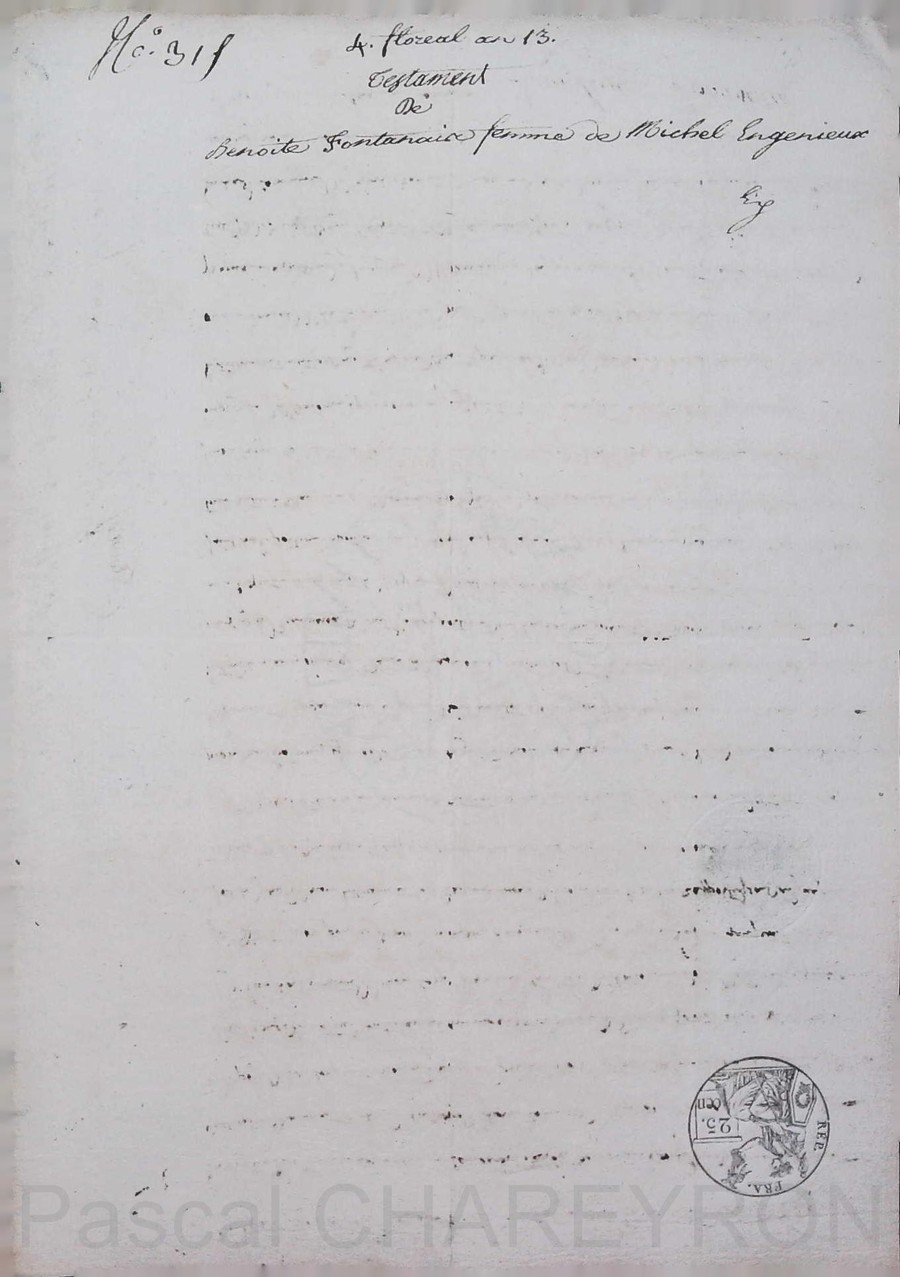 No. 315
4. floreal an 13.
Testament
De
Benoite Fontanaix femme de Michel Engenieux
REP. FRA.
25. CEN
Pascal CHAREYRON